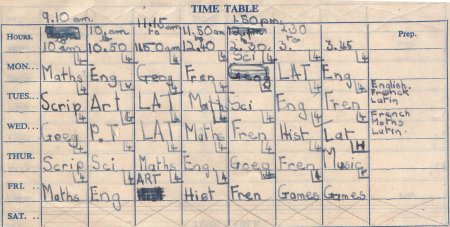 TIME TABLE
9.10 am. 11.15 am 1.50 p.m.
HOURS. 10 am to 11.50 am 2.30 Prep.
10 am 10.50 11.50 am 12.40 2.30 3. 3.45
MON. .. Maths Eng Geog Fren Sci LAT Eng
TUES. .. Scrip Art LAT Maths Sci Eng Fren English. French Latin
WED. ... Goeg P.T LAT Maths Fren Hist Lat French Maths Latin.
THUR. Scrip Sci Maths Eng Goeg Fren Music
FRI. .. Maths Eng ART Hist Fren Games Games
SAT. ..